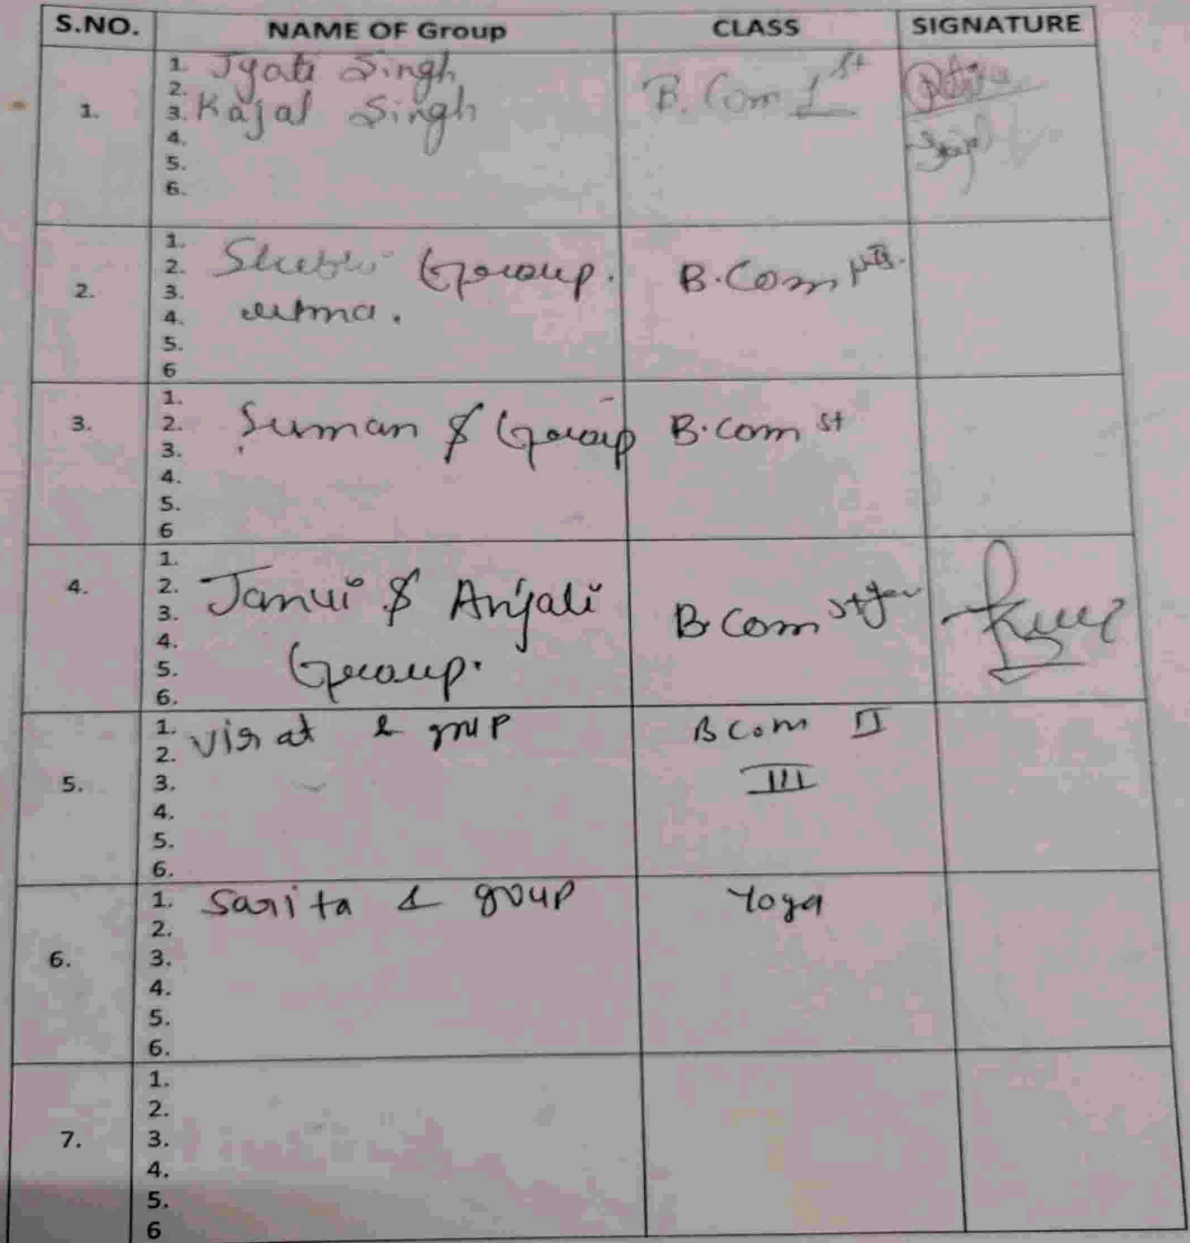 S.NO. NAME OF Group CLASS SIGNATURE
1.
1. Jyati Singh
2.
3. Kajal Singh
4.
5.
6.
B.Com 1st
2.
1.
2. Group.
3.
4.
5.
6
B.Com
3.
1.
2. Suman & Group
3.
4.
5.
6
B.com st
4.
1.
2.
3. Janui & Anjali
4.
5. Group.
6.
B.Com st
5.
1. Virat & grup
2.
3.
4.
5.
6.
BCom II
III
6.
1. Sarita & group
2.
3.
4.
5.
6.
Yoga
7.
1.
2.
3.
4.
5.
6